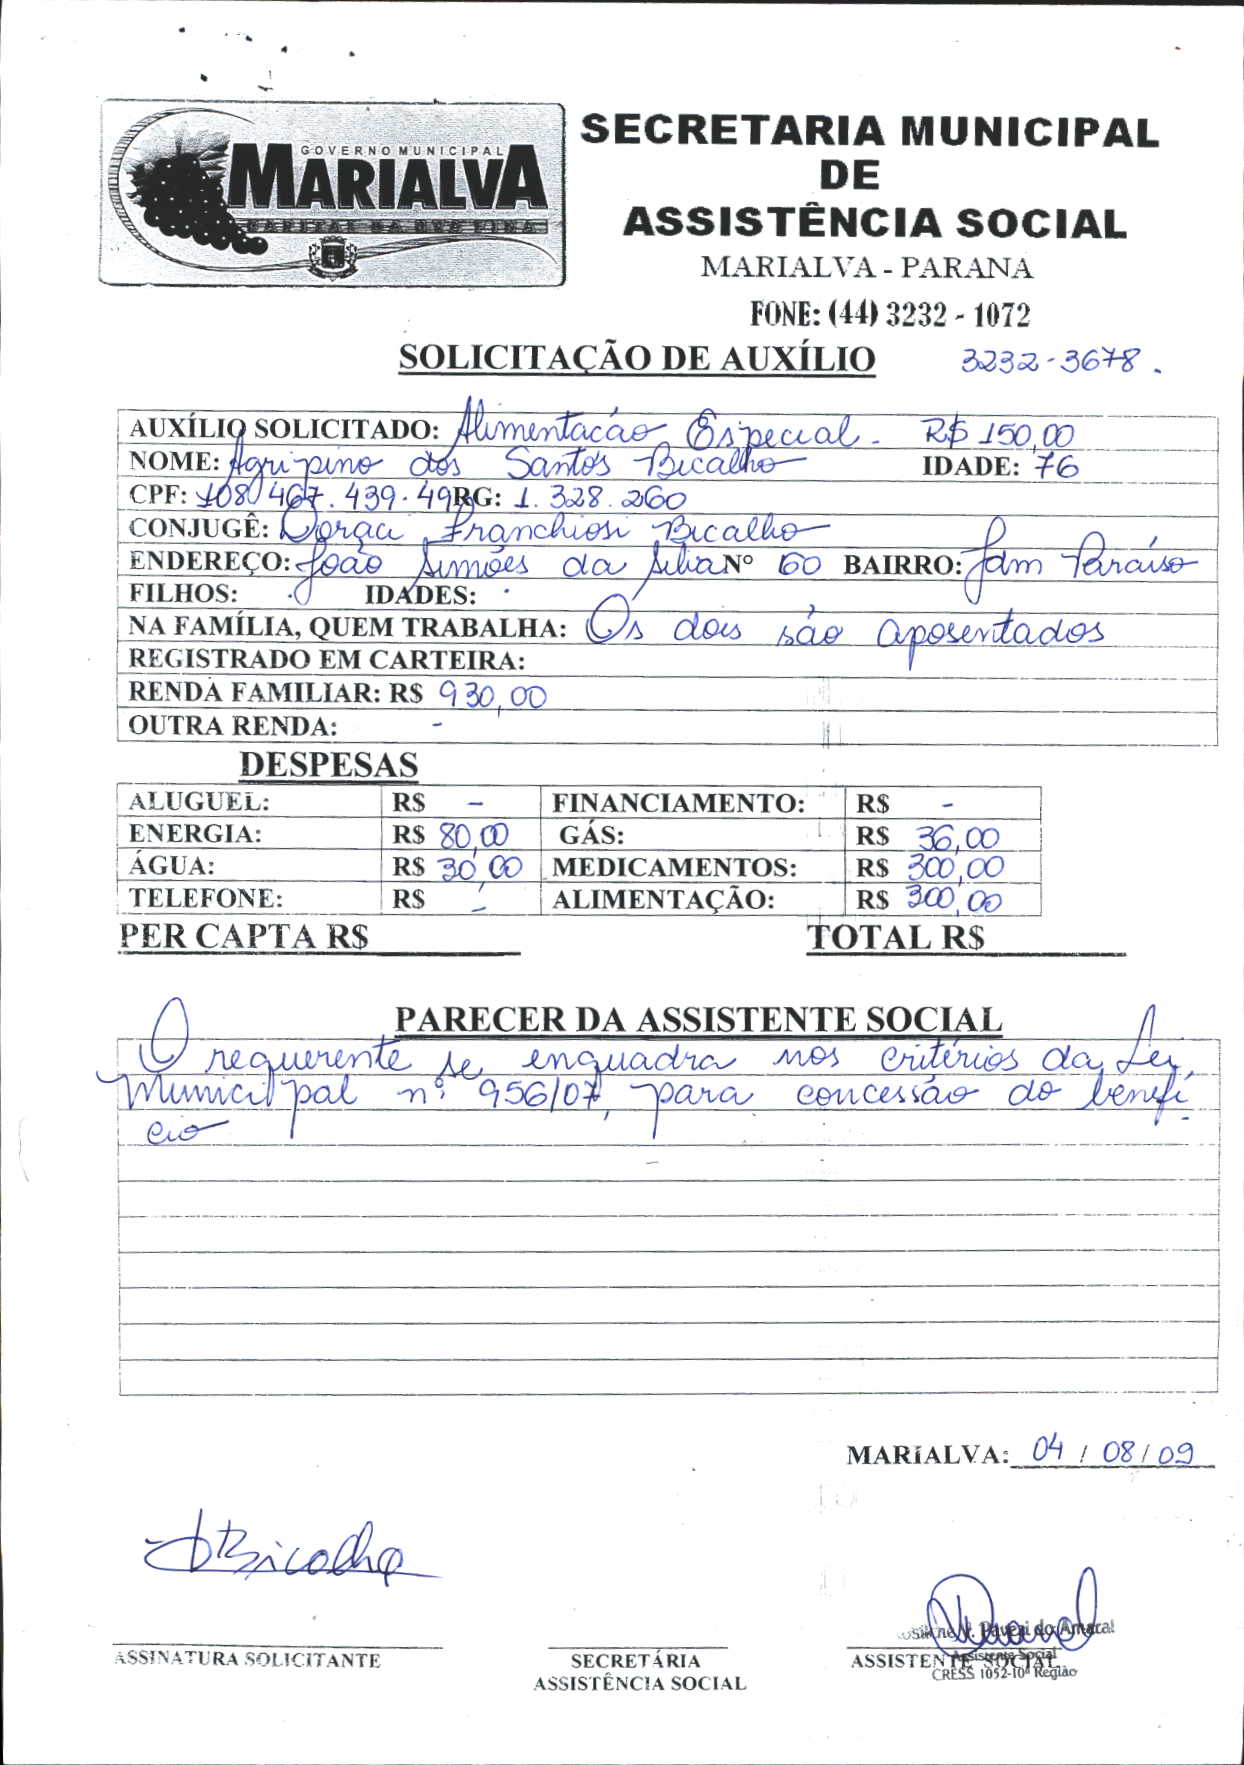 GOVERNO MUNICIPAL
MARIALVA
CAPITAL DA UVA FINA
SECRETARIA MUNICIPAL
DE
ASSISTÊNCIA SOCIAL
MARIALVA - PARANÁ
FONE: (44) 3232 - 1072
SOLICITAÇÃO DE AUXÍLIO 3232-3678.
AUXÍLIO SOLICITADO: Alimentacáo Especial - R$ 150,00
NOME: Agripino dos Santos Bicalho IDADE: 76
CPF: 108.467.439-49 RG: 1.328.260
CONJUGÊ: Doraci Franchiosi Bicalho
ENDEREÇO: João Simões da Silva Nº 60 BAIRRO: Jdm Paraíso
FILHOS: - IDADES: -
NA FAMÍLIA, QUEM TRABALHA: Os dois são aposentados
REGISTRADO EM CARTEIRA:
RENDA FAMILIAR: R$ 930,00
OUTRA RENDA: -
DESPESAS
ALUGUEL: R$ - FINANCIAMENTO: R$ -
ENERGIA: R$ 80,00 GÁS: R$ 36,00
ÁGUA: R$ 30,00 MEDICAMENTOS: R$ 300,00
TELEFONE: R$ - ALIMENTAÇÃO: R$ 300,00
PER CAPTA R$ TOTAL R$
PARECER DA ASSISTENTE SOCIAL
O requerente se enquadra nos critérios da Lei
Municipal nº 956/07, para concessão do benefi
cio
MARIALVA: 04 / 08 / 09
Bicalho
V. Pavezi do Amaral
Assistente Social
CRESS 1052-10ª Região
ASSINATURA SOLICITANTE SECRETÁRIA ASSISTENTE SOCIAL
ASSISTÊNCIA SOCIAL